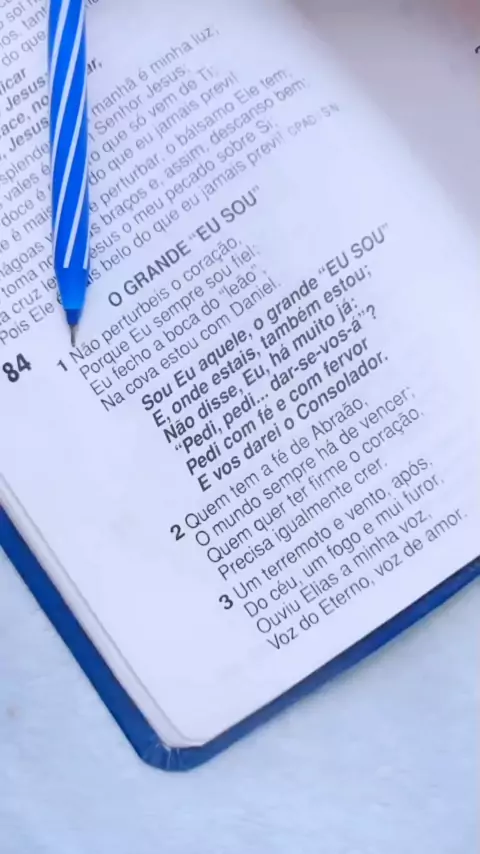 ficar
Jesus;
Jesus
manhã é minha luz,
Senhor Jesus;
o que só vem de Ti;
do que eu jamais previ!
perturbar, o bálsamo Ele tem;
us braços e, assim, descanso bem;
Jesus o meu pecado sobre Si;
is belo do que eu jamais previ! CPAD/ SN
Pois Ele é
84
O GRANDE “EU SOU”
1 Não perturbeis o coração,
Porque Eu sempre sou fiel;
Eu fecho a boca do “leão”;
Na cova estou com Daniel.
Sou Eu aquele, o grande “EU SOU”
E, onde estais, também estou;
Não disse, Eu, há muito já:
“Pedi, pedi... dar-se-vos-á”?
Pedi com fé e com fervor
E vos darei o Consolador.
2 Quem tem a fé de Abraão,
O mundo sempre há de vencer;
Quem quer ter firme o coração,
Precisa igualmente crer.
3 Um terremoto e vento, após,
Do céu, um fogo e mui furor,
Ouviu Elias a minha voz,
Voz do Eterno, voz de amor.